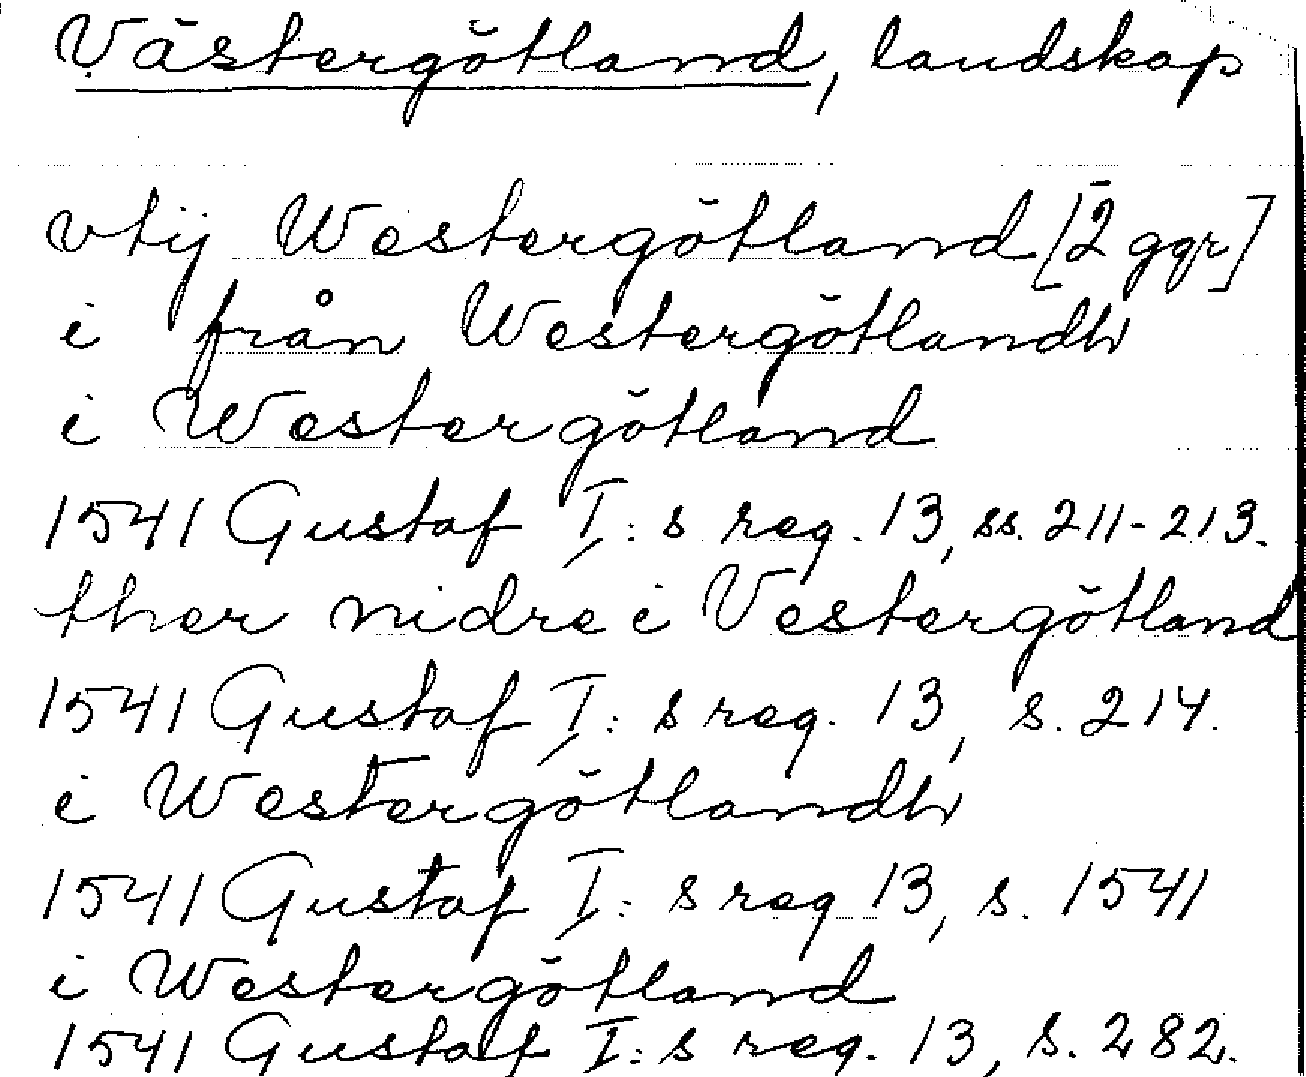 Västergötland, landskap
vtij Westergötland [2 ggr]
i från Westergötlandh
i Westergötland
1541 Gustaf I:s reg. 13, ss. 211-213.
ther nidre i Vestergötland
1541 Gustaf I:s reg. 13, s. 214.
i Westergötlandh
1541 Gustaf I:s reg 13, s. 1541
i Westergötland
1541 Gustaf I:s reg. 13, s. 282.